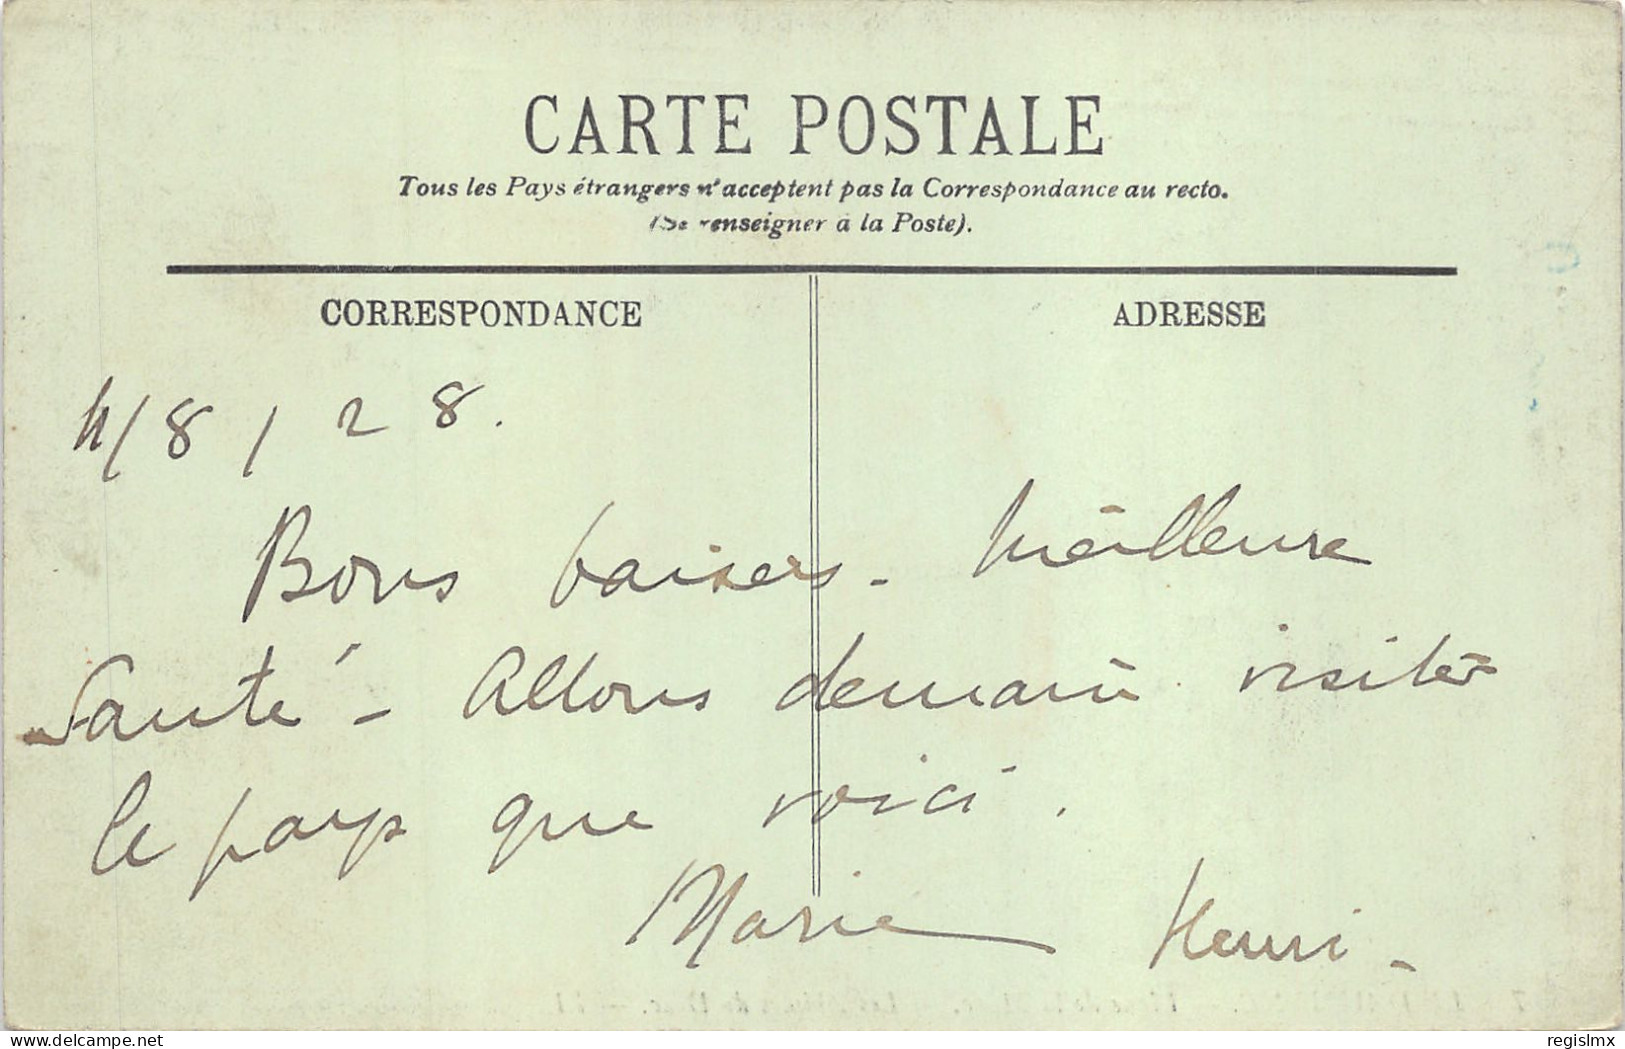 CARTE POSTALE
Tous les Pays étrangers n'acceptent pas la Correspondance au recto.
(Se renseigner à la Poste).
CORRESPONDANCE
ADRESSE
4/8/28.
Bons baisers - Meilleure
Santé - Allons demain visiter
le pays que voici.
Marie Henri -
delcampe.net
regislmx